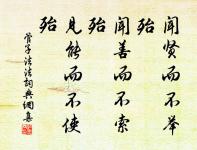 闻贤而不举
殆
闻善而不索
殆
见能而不使
殆
管子法法詞典網集